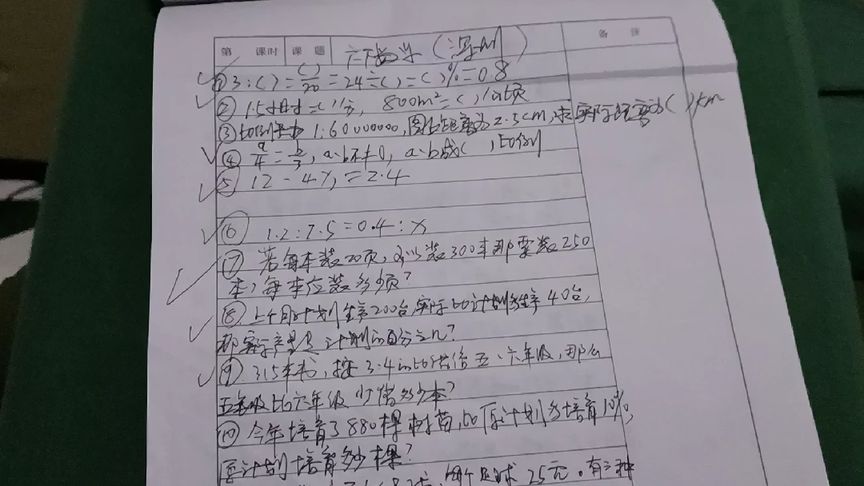 第 课时 课题 六下数学(
备课
①3:( )=( )/20=24÷( )=( )%=0.8
② 1.5小时=( )分, 800m²=( )公顷
③比例尺为1:6000000,图上距离为2.5cm,求实际距离为( )km
④ a/4=b/3, a、b不为0, a、b成( )比例
⑤ 12-4x=2.4
⑥ 1.2:7.5=0.4:x
⑦ 若每本装20页,可以装300本那要装250
本,每本应装多少页?
⑧上个月计划生产200台,实际比计划多生产40台,
那实际产量是计划的百分之几?
⑨ 315本书,按3:4的比借给五、六年级,那么
五年级比六年级少借多少本?
⑩ 今年培育了880棵树苗,比原计划多培育10%,
原计划培育多少棵?
25元。有三种